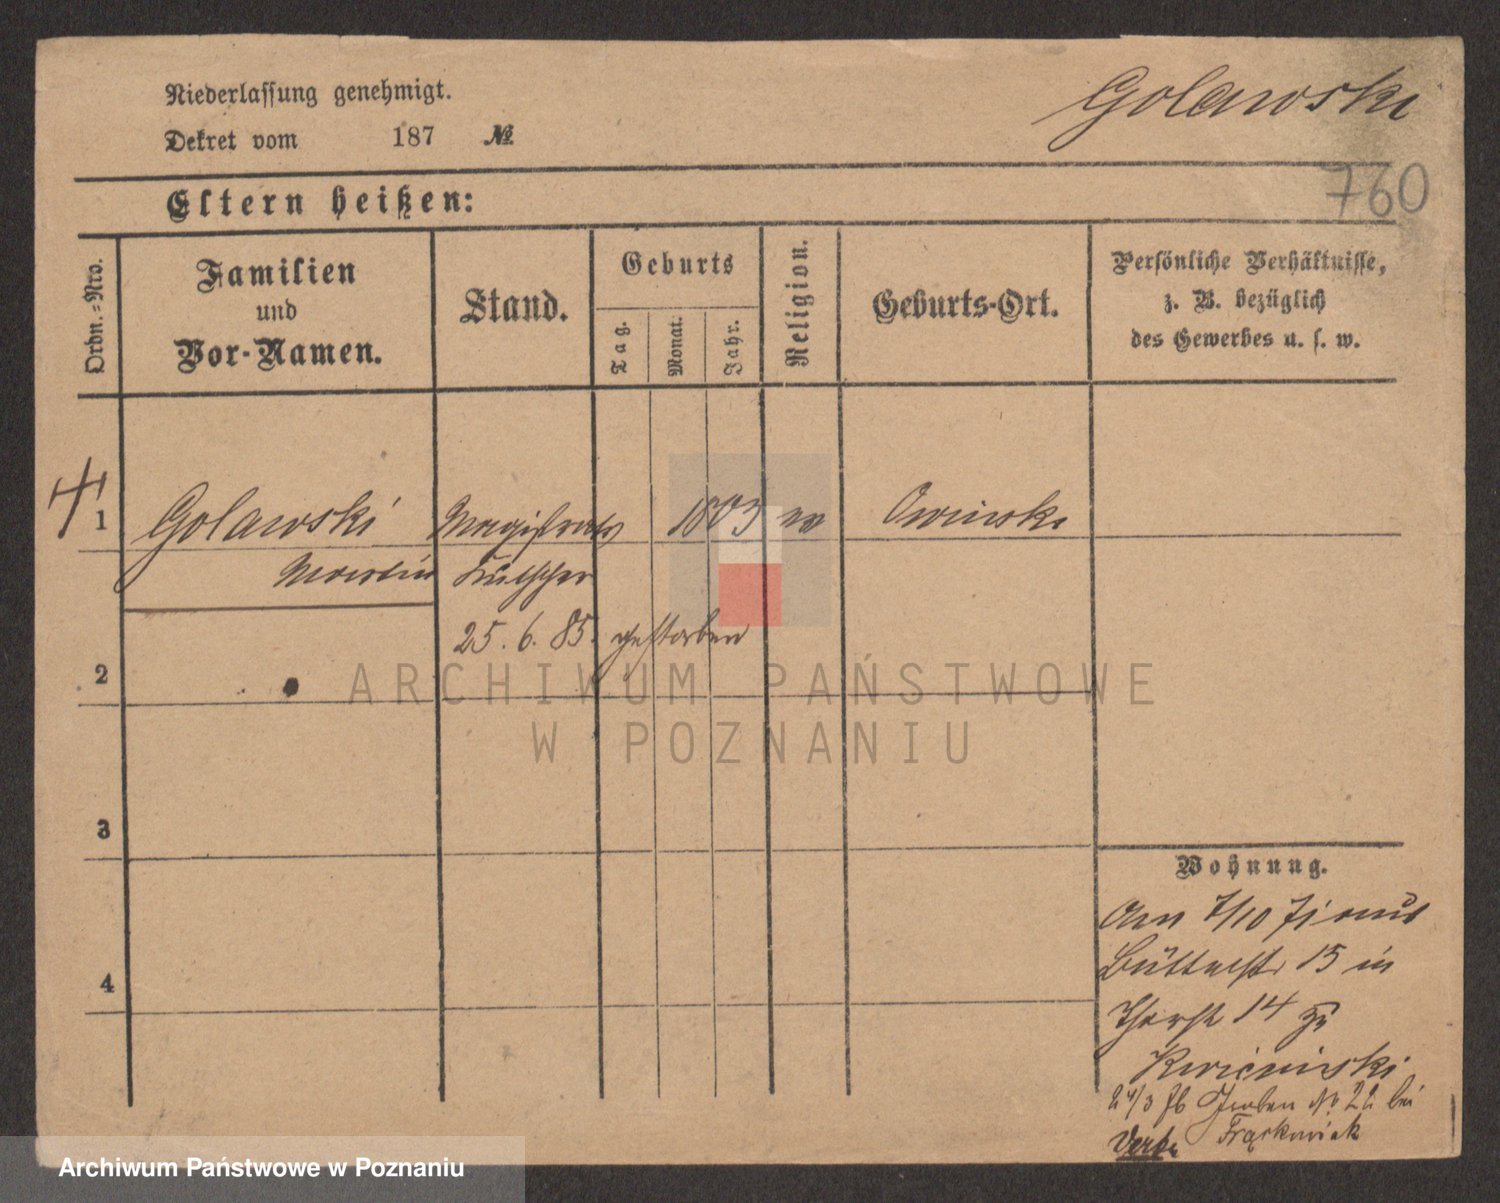 Niederlassung genehmigt.
Golawski
Dekret vom 187 №
760
Eltern heißen:
Ordn.-Nro.
Familien
und
Vor-Namen.
Stand.
Geburts
Tag.
Monat.
Jahr.
Religion.
Geburts-Ort.
Persönliche Verhältnisse,
z. B. bezüglich
des Gewerbes u. s. w.
1 Golawski Magistrats 1803 Owinsk
Martin Kutscher
25. 6. 85. gestorben
2
ARCHIWUM PAŃSTWOWE
W POZNANIU
3
Wohnung.
Am 7/10 71 aus
4
Büttelst 15 in
14 zu
Kwiecinski
24/3 76 Graben № 22 bei
Frąckowiak
Archiwum Państwowe w Poznaniu